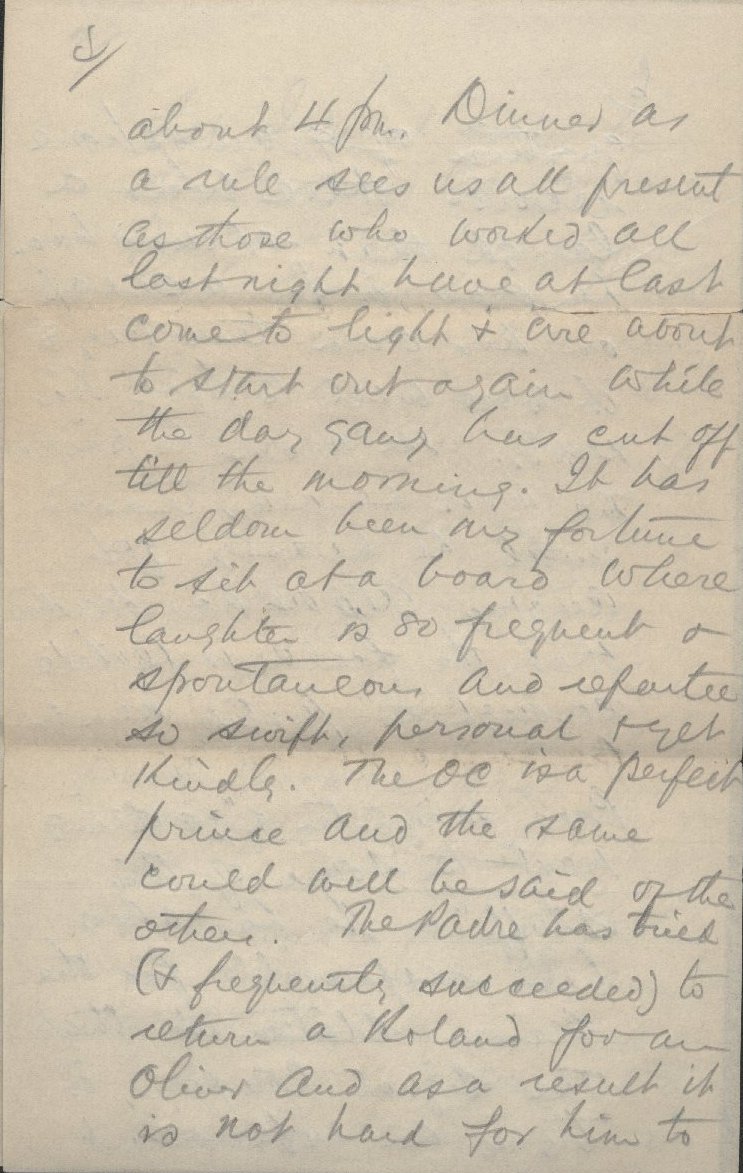 5/
about 4 pm. Dinner as
a rule sees us all present
as those who worked all
last night have at last
come to light & are about
to start out again while
the day gang has cut off
till the morning. It has
seldom been my fortune
to sit at a board where
laughter is so frequent &
spontaneous and repartee
so swift, personal & yet
kindly. The OC is a perfect
prince and the same
could well be said of the
others. The Padre has tried
(& frequently succeeded) to
return a Roland for an
Oliver and as a result it
is not hard for him to